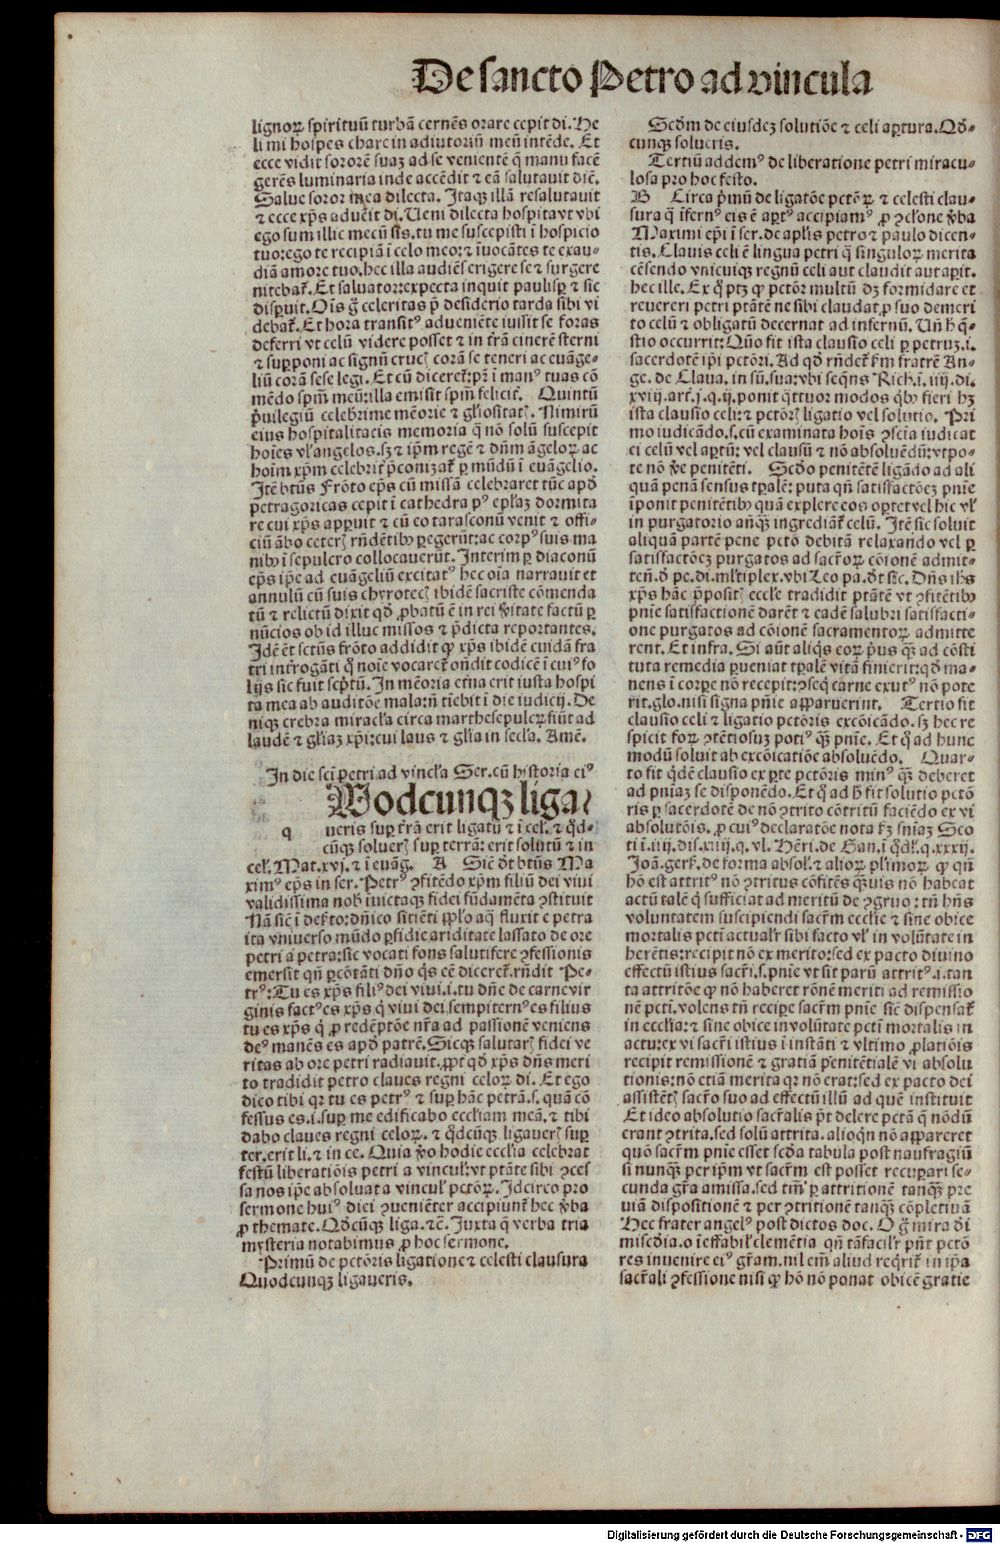 De sancto Petro ad vincula
lignoꝝ spirituũ turbã cernẽs orare cepit dĩ. He
li mi hospes chare in adiutoriũ meũ intẽde. Et
ecce vidit sororẽ suaꝫ ad se venientẽ q̃ manu facẽ
gerẽs luminaria inde accẽdit ⁊ eã salutauit diẽ.
Salue soror mea dilecta. Itaqꝫ illã resalutauit
⁊ ecce xp̃s aduẽit dĩ. Veni dilecta hospita vt vbi
ego sum illic mecũ sis. tu me suscepisti ĩ hospicio
tuo: ego te recipiã ĩ celo meo: ⁊ ĩuocãtes te exau-
diã amore tuo. hec illa audiẽs erigere se ⁊ surgere
nitebat᷑. Et saluator: expecta inquit paulisꝑ ⁊ sic
disꝑuit. Oĩs g̃ celeritas p̃ desiderio tarda sibi vi
debat᷑. Et hora transitꝰ adueniẽte iussit se foras
deferri vt celũ videre posset ⁊ in t̃rã cinerẽ sterni
⁊ supponi ac signũ crucꝭ corã se teneri ac euãge-
liũ corã sese legi. Et cũ diceret᷑: pr̃ ĩ manꝰ tuas cõ
mẽdo spm̃ meũ: illa emisit spm̃ felicit᷑. Quintũ
p̃uilegiũ celebrime mẽorie ⁊ gl̃iositatꝭ. Nimirũ
eius hospitalitatis memoria q̃ nõ solũ suscepit
hoĩes vl̓ angelos. sꝫ ⁊ ip̃m regẽ ⁊ dñm ãgeloꝝ ac
hoĩm xp̃m celebrit᷑ p̃conizat᷑ ꝑ mũdũ ĩ euãgelio.
Itẽ bt̃us Frõto ep̃s cũ missã celebraret tũc apđ
petragoricas cepit ĩ cathedra pꝰ ep̃laꝫ dormita
re cui xp̃s apparuit ⁊ cũ eo tarasconũ venit ⁊ offi-
ciũ ãbo ceterꝭ rñdẽtibꝰ ꝑegerũt: ac corpꝰ suis ma
nibꝰ ĩ sepulcro collocauerũt. Interim ꝑ diaconũ
ep̃s ip̃e ad euãgeliũ excitatꝰ hec oĩa narrauit et
annulũ cũ suis chyrotecꝭ ibidẽ sacriste cõmenda
tũ ⁊ relictũ dixit qđ ꝓbatũ ẽ in rei ṽitate factũ ꝑ
nũcios ob id illuc missos ⁊ p̃dicta reportantes.
Idẽ ẽt sctũs frõto addidit ꝙ xp̃s ibidẽ cuidã fra
tri int̃rogãti q̃ noĩe vocaret᷑ oñdit codicẽ ĩ cuiꝰ fo
lijs sic fuit scp̃tũ. In mẽoria et̃na erit iusta hospi
ta mea ab auditõe mala: ñ tĩebit ĩ die iudicij. De
niqꝫ crebra miracl̃a circa marthe sepulcꝝ fiũt ad
laudẽ ⁊ gl̃iaꝫ xp̃i: cui laus ⁊ gl̃ia in secl̃a. Amẽ.
In die sci petri ad vincl̃a Ser. cũ historia eiꝰ
Quodcunqꝫ liga
q ueris suꝑ t̃rã erit ligatũ ⁊ ĩ cel̓. ⁊ q̃d-
cũqꝫ soluerꝭ suꝑ terrã: erit solutũ ⁊ in
cel̓. Mat. xvj. ⁊ ĩ euãg. A Siẽ đt bt̃us Ma
ximꝰ ep̃s in ser. Petrꝰ ꝯfitẽdo xp̃m filiũ dei viui
validissima nob̓ iuictaqꝫ fidei fũdamẽta ꝯstituit
Nã siẽ ĩ deẜto: dñico sitiẽti pp̃lo aq̃ fluxit e petra
ita vniuerso mũdo ꝑfidie ariditate lassato de ore
petri a petra: sic vocati fons salutifere ꝯfessionis
emersit qñ ꝑcõtãti dño q̃s eẽ diceret᷑. rñdit Pe-
trꝰ: Tu es xp̃s filiꝰ dei viui. i. tu dñe de carne vir
ginis factꝰ es xp̃s q̃ viui dei sempiternꝰ es filius
tu es xp̃s q̃ ꝓ redẽptõe nr̃a ad passionẽ veniens
deꝰ manẽs es apđ patrẽ. Sicqꝫ salutarꝭ fidei ve
ritas ab ore petri radiauit. ꝓpt qđ xp̃s dñs meri
to tradidit petro claues regni celoꝝ dĩ. Et ego
dico tibi qꝛ tu es petrꝰ ⁊ suꝑ hãc petrã. s. quã cõ
fessus es. i. suꝑ me edificabo eccl̃iam meã. ⁊ tibi
dabo claues regni celoꝝ. ⁊ q̃dcũqꝫ ligauerꝭ suꝑ
ter. erit li. ⁊ in ce. Quia ṽo hodie eccl̃ia celebrat
festũ liberatiõis petri a vincul̓: vt ptãte sibi ꝯces
sa nos ip̃e absoluat a vincul̓ pctõꝝ. Idcirco pro
sermone huiꝰ diei ꝯueniẽter accipiunt᷑ hec ṽba
ꝓ themate. Qđcũqꝫ liga. ⁊c̃. Iuxta q̃ verba tria
mysteria notabimus ꝓ hoc sermone.
Primũ de pctõris ligatione ⁊ celesti clausura
Quodcunqꝫ ligaueris.
Scđm de eiusdeꝫ solutiõe ⁊ celi aꝑtura. Qđ-
cunqꝫ solueris.
Tertiũ addemꝰ de liberatione petri miracu-
losa pro hoc festo.
B Circa p̃mũ de ligatõe pctõꝝ ⁊ celesti clau-
sura q̃ ĩfernꝰ eis ẽ aꝑtꝰ accipiamꝰ ꝓ ꝯclõne ṽba
Maximi ep̃i ĩ ser. de apl̃is petro ⁊ paulo dicen-
tis. Clauis celi ẽ lingua petri q̃ singuloꝝ merita
cẽsendo vnicuiqꝫ regnũ celi aut claudit aut aꝑit.
hec ille. Ex q̃ ptꝫ ꝙ pctõr multũ dꝫ formidare et
reuereri petri ptãtẽ ne sibi claudat ꝓ suo demeri
to celũ ⁊ obligatũ decernat ad infernũ. Uñ h̃ q̃-
stio occurrit: Quõ fit ista clausio celi ꝑ petruꝫ. i.
sacerdotẽ ip̃i pctõri. Ad qđ rñdet᷑ ẜm fratrẽ An-
ge. de Claua. in sũ. sua: vbi seq̃ns Rich. ĩ. iiij. di.
xviij. art. j. q. ij. ponit q̃ttuor modos q̃bꝰ fieri hꝫ
ista clausio celi: ⁊ pctõrꝭ ligatio vel solutio. Pri
mo iudicãdo. s. cũ examinata hoĩs ꝯscĩa iudicat
ei celũ vel aꝑtũ: vel clausũ ⁊ nõ absoluẽdũ: vtpo-
te nõ ṽe penitẽti. Scđo penitẽtẽ ligãdo ad ali
quã penã sensus tp̃alẽ: puta qñ satisfactõeꝫ pñie
ĩponit penitẽtibꝰ quã explere eos oportet vel hic vl̓
in purgatorio añq̃ꝫ ingrediãt᷑ celũ. Itẽ sic soluit
aliquã partẽ pene pctõ debitã relaxando vel ꝑ
satisfactõeꝫ purgatos ad sacr̃oꝝ cõionẽ admit-
teñ. đ pe. di. ml̓tiplex. vbi Leo pa. đt sic. Dñs ih̃s
xp̃s hãc p̃positꝭ eccl̃e tradidit ptãtẽ vt ꝯfitẽtibꝰ
pñie satisfactionẽ darẽt ⁊ eadẽ salubri satisfacti-
one purgatos ad cõionẽ sacramentoꝝ admitte
rent. Et infra. Si aũt aliq̃s eoꝝ p̃us q̃ꝫ ad cõsti
tuta remedia ꝑueniat tp̃alẽ vitã finierit: qđ ma-
nens ĩ corꝑe nõ recepit: ꝯseq̃ carne exutꝰ nõ pote
rit. glo. nisi signa pñie apparuerint. Tertio fit
clausio celi ⁊ ligatio pctõris excõicãdo. sꝫ hec re
spicit foꝝ ꝯtẽtiosuꝫ potiꝰ q̃ꝫ pñie. Et q̃ ad hunc
modũ soluit ab excõicatiõe absoluẽdo. Quar-
to fit q̃dẽ clausio ex ꝑte pctõris minꝰ q̃ꝫ deberet
ad pñiaꝫ se disponẽdo. Et q̃ ad h̃ fit solutio pctõ
ris ꝑ sacerdotẽ de nõ ꝯtrito cõtritũ faciẽdo ex vi
absolutõis. ꝓ cuiꝰ declaratõe nota ẜꝫ sñiaꝫ Sco
ti ĩ. iiij. dis. xiiij. q. vl. Hẽri. de Gan. ĩ q̃dl̓. q. xxxij.
Joã. gerẜ. de forma absol̓. ⁊ alioꝝ pl̓imoꝝ ꝙ qñ
hõ est attritꝰ nõ ꝯtritus cõfitẽs q̃ꝫuis nõ habeat
actũ talẽ q̃ sufficiat ad meritũ de ꝯgruo: tñ hñs
voluntatem suscipiendi sacr̃m eccl̃ie ⁊ sine obice
mortalis pcti actual̓r sibi facto vl̓ in volũtate in
herẽtis: recipit nõ ex merito: sed ex pacto diuino
effectũ istius sacr̃i. s. pñie vt sit parũ attritꝰ. i. tan
ta attritõe ꝙ nõ haberet rõnẽ meriti ad remissio
nẽ pcti. volens tñ reciꝑe sacr̃m pñie siẽ dispensat᷑
in eccl̃ia: ⁊ sine obice in volũtate pcti mortalis in
actu: ex vi sacr̃i istius ĩ instãti ⁊ vltimo ꝓlatiõis
recipit remissionẽ ⁊ gratiã pẽnitẽtialẽ vi absolu
tionis: nõ etiã merita qꝛ nõ erat: sed ex pacto dei
assistẽtꝭ sacr̃o suo ad effectũ illũ ad quẽ instituit
Et ideo absolutio sacr̃alis p̃t delere pctã q̃ nõdũ
erant ꝯtrita. sed solũ attrita. alioq̃n nõ appareret
quõ sacr̃m pñie esset scđa tabula post naufragiũ
si nunqꝫ per ip̃m vt sacr̃m est posset recuꝑari se-
cunda gr̃a amissa. sed tm̃ ꝑ attritionẽ tanq̃ꝫ pre
uiã dispositionẽ ⁊ per ꝯtritionẽ tanqꝫ cõpletiuã
Hec frater angelꝰ post dictos doc. O g̃ mira đi
misc̃dia. o ĩeffabil̓ clemẽtia qñ tã facil̓r pñt pctõ
res inuenire eiꝰ gr̃am. nil eñ aliud req̃rit᷑ in ip̃a
sacr̃ali ꝯfessione nisi ꝙ hõ nõ ponat obicẽ gratie
Digitalisierung gefördert durch die Deutsche Forschungsgemeinschaft - DFG